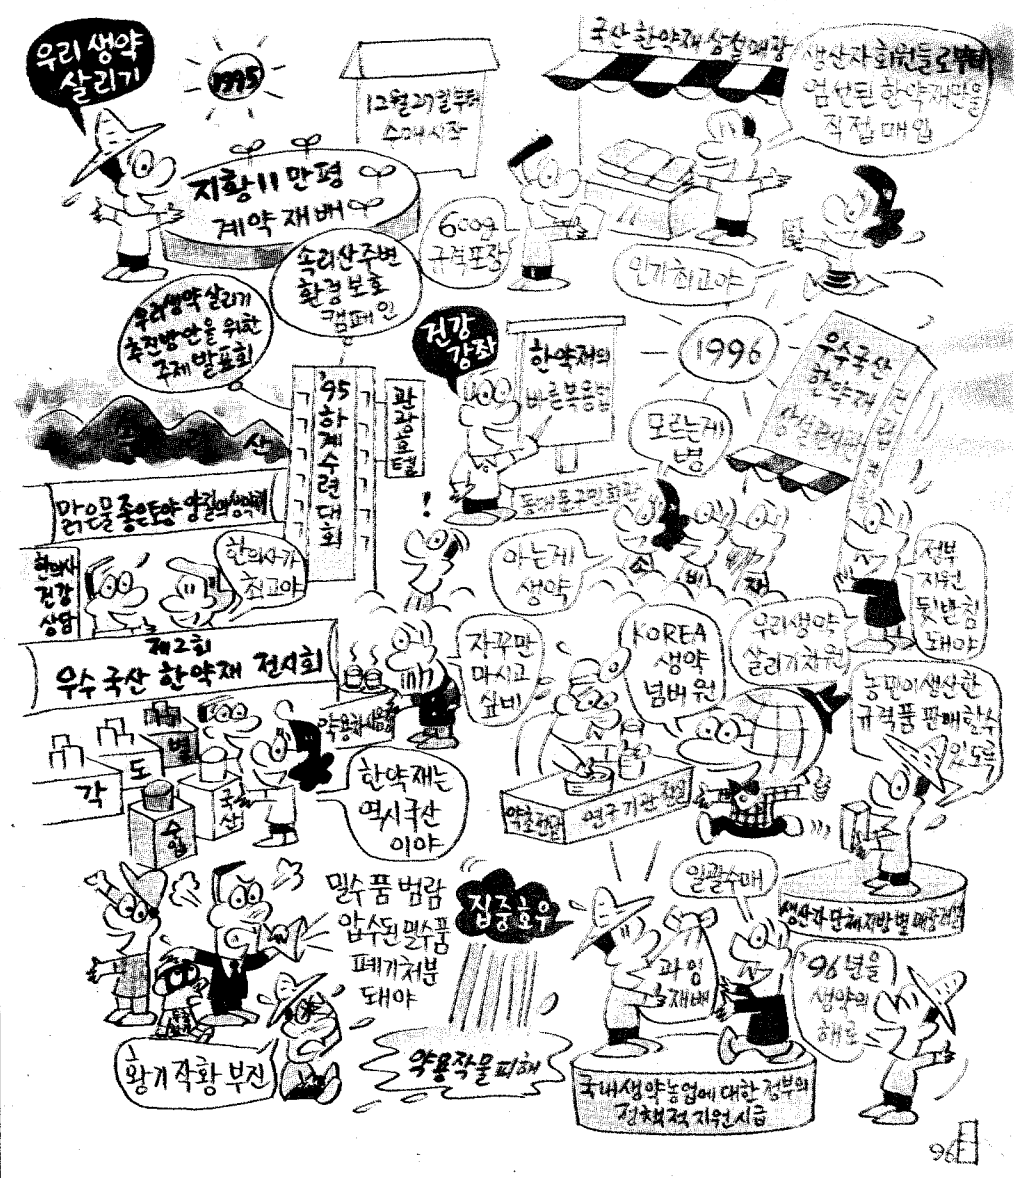 우리 생약
살리기
1995
12월 27일부터
수매시작
국산 한약재 상설매장
생산자 회원들로부터
엄선된 한약재만을
직접 매입
지황 11만평
계약재배
600g
규격포장
인기최고야
속리산 주변
환경보호
캠페인
우리생약 살리기
추진방안을 위한
주제발표회
건강
강좌
한약재의
바른복용법
1996
우수국산
한약재
모르는게
병
'95
하계수련대회
관광호텔
산
맑은물 좋은토양 양질의생약재
한의사
건강
상담
한의사가
최고야
!
동대문구민회관
아는게
생약
소
비
자
정부
지원
뒷받침
돼야
제2회
우수 국산 한약재 전시회
자꾸만
마시고
싶네
KOREA
생약
넘버원
우리생약
살리기차원
농민이 생산한
규격품 판매할수
있도록
각
도
별
국산
수입
한약재는
역시국산
이야
연구기관 전시
밀수품 범람
압수된 밀수품
폐기처분
돼야
집중호우
일괄수매
생산자단체 지방별 매장
과잉
재배
'96년을
생약의
해로
황기작황부진
약용작물피해
국내생약농업에 대한 정부의
정책적 지원시급
96